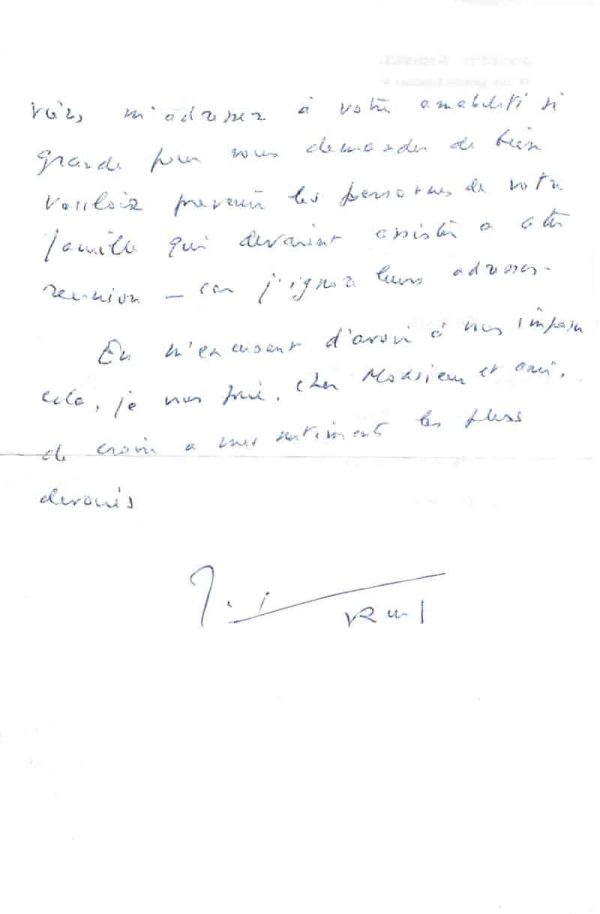 m'adresser à votre amabilité si
grande pour vous demander de bien
vouloir prévenir les personnes de votre
famille qui devaient assister à cette
réunion – car j'ignore leurs adresses.
En m'excusant d'avoir à vous imposer
cela, je vous prie, cher Monsieur et ami,
de croire à mes sentiments les plus
dévoués